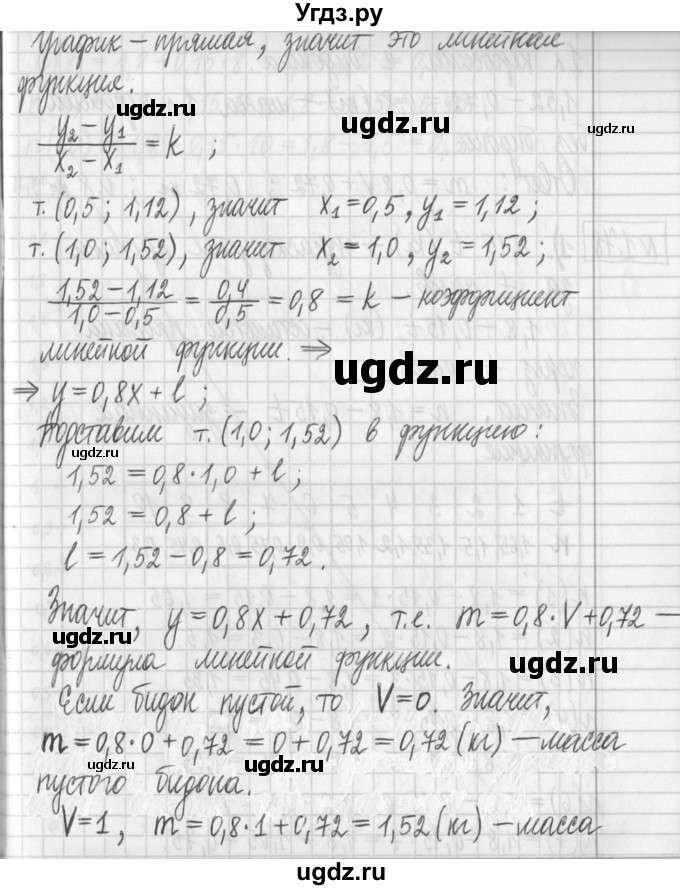 Угдз.ру
График – прямая, значит это линейная
функция.
(y₂ – y₁)/(x₂ – x₁) = k ;
т. (0,5 ; 1,12), значит x₁ = 0,5, y₁ = 1,12 ;
т. (1,0 ; 1,52), значит x₂ = 1,0, y₂ = 1,52 ;
(1,52 – 1,12)/(1,0 – 0,5) = 0,4/0,5 = 0,8 = k – коэффициент
линейной функции. ⇒
⇒ y = 0,8x + l ;
Подставим т. (1,0 ; 1,52) в функцию :
1,52 = 0,8 · 1,0 + l ;
1,52 = 0,8 + l ;
l = 1,52 – 0,8 = 0,72 .
Значит, y = 0,8x + 0,72 , т.е. m = 0,8 · V + 0,72 –
формула линейной функции.
Если бидон пустой, то V = 0. Значит,
m = 0,8 · 0 + 0,72 = 0 + 0,72 = 0,72 (кг) – масса
пустого бидона.
V = 1 , m = 0,8 · 1 + 0,72 = 1,52 (кг) – масса
ugdz.ru
ugdz.ru
ugdz.ru
ugdz.ru
ugdz.ru
ugdz.ru
ugdz.ru
ugdz.ru
ugdz.ru
ugdz.ru
ugdz.ru